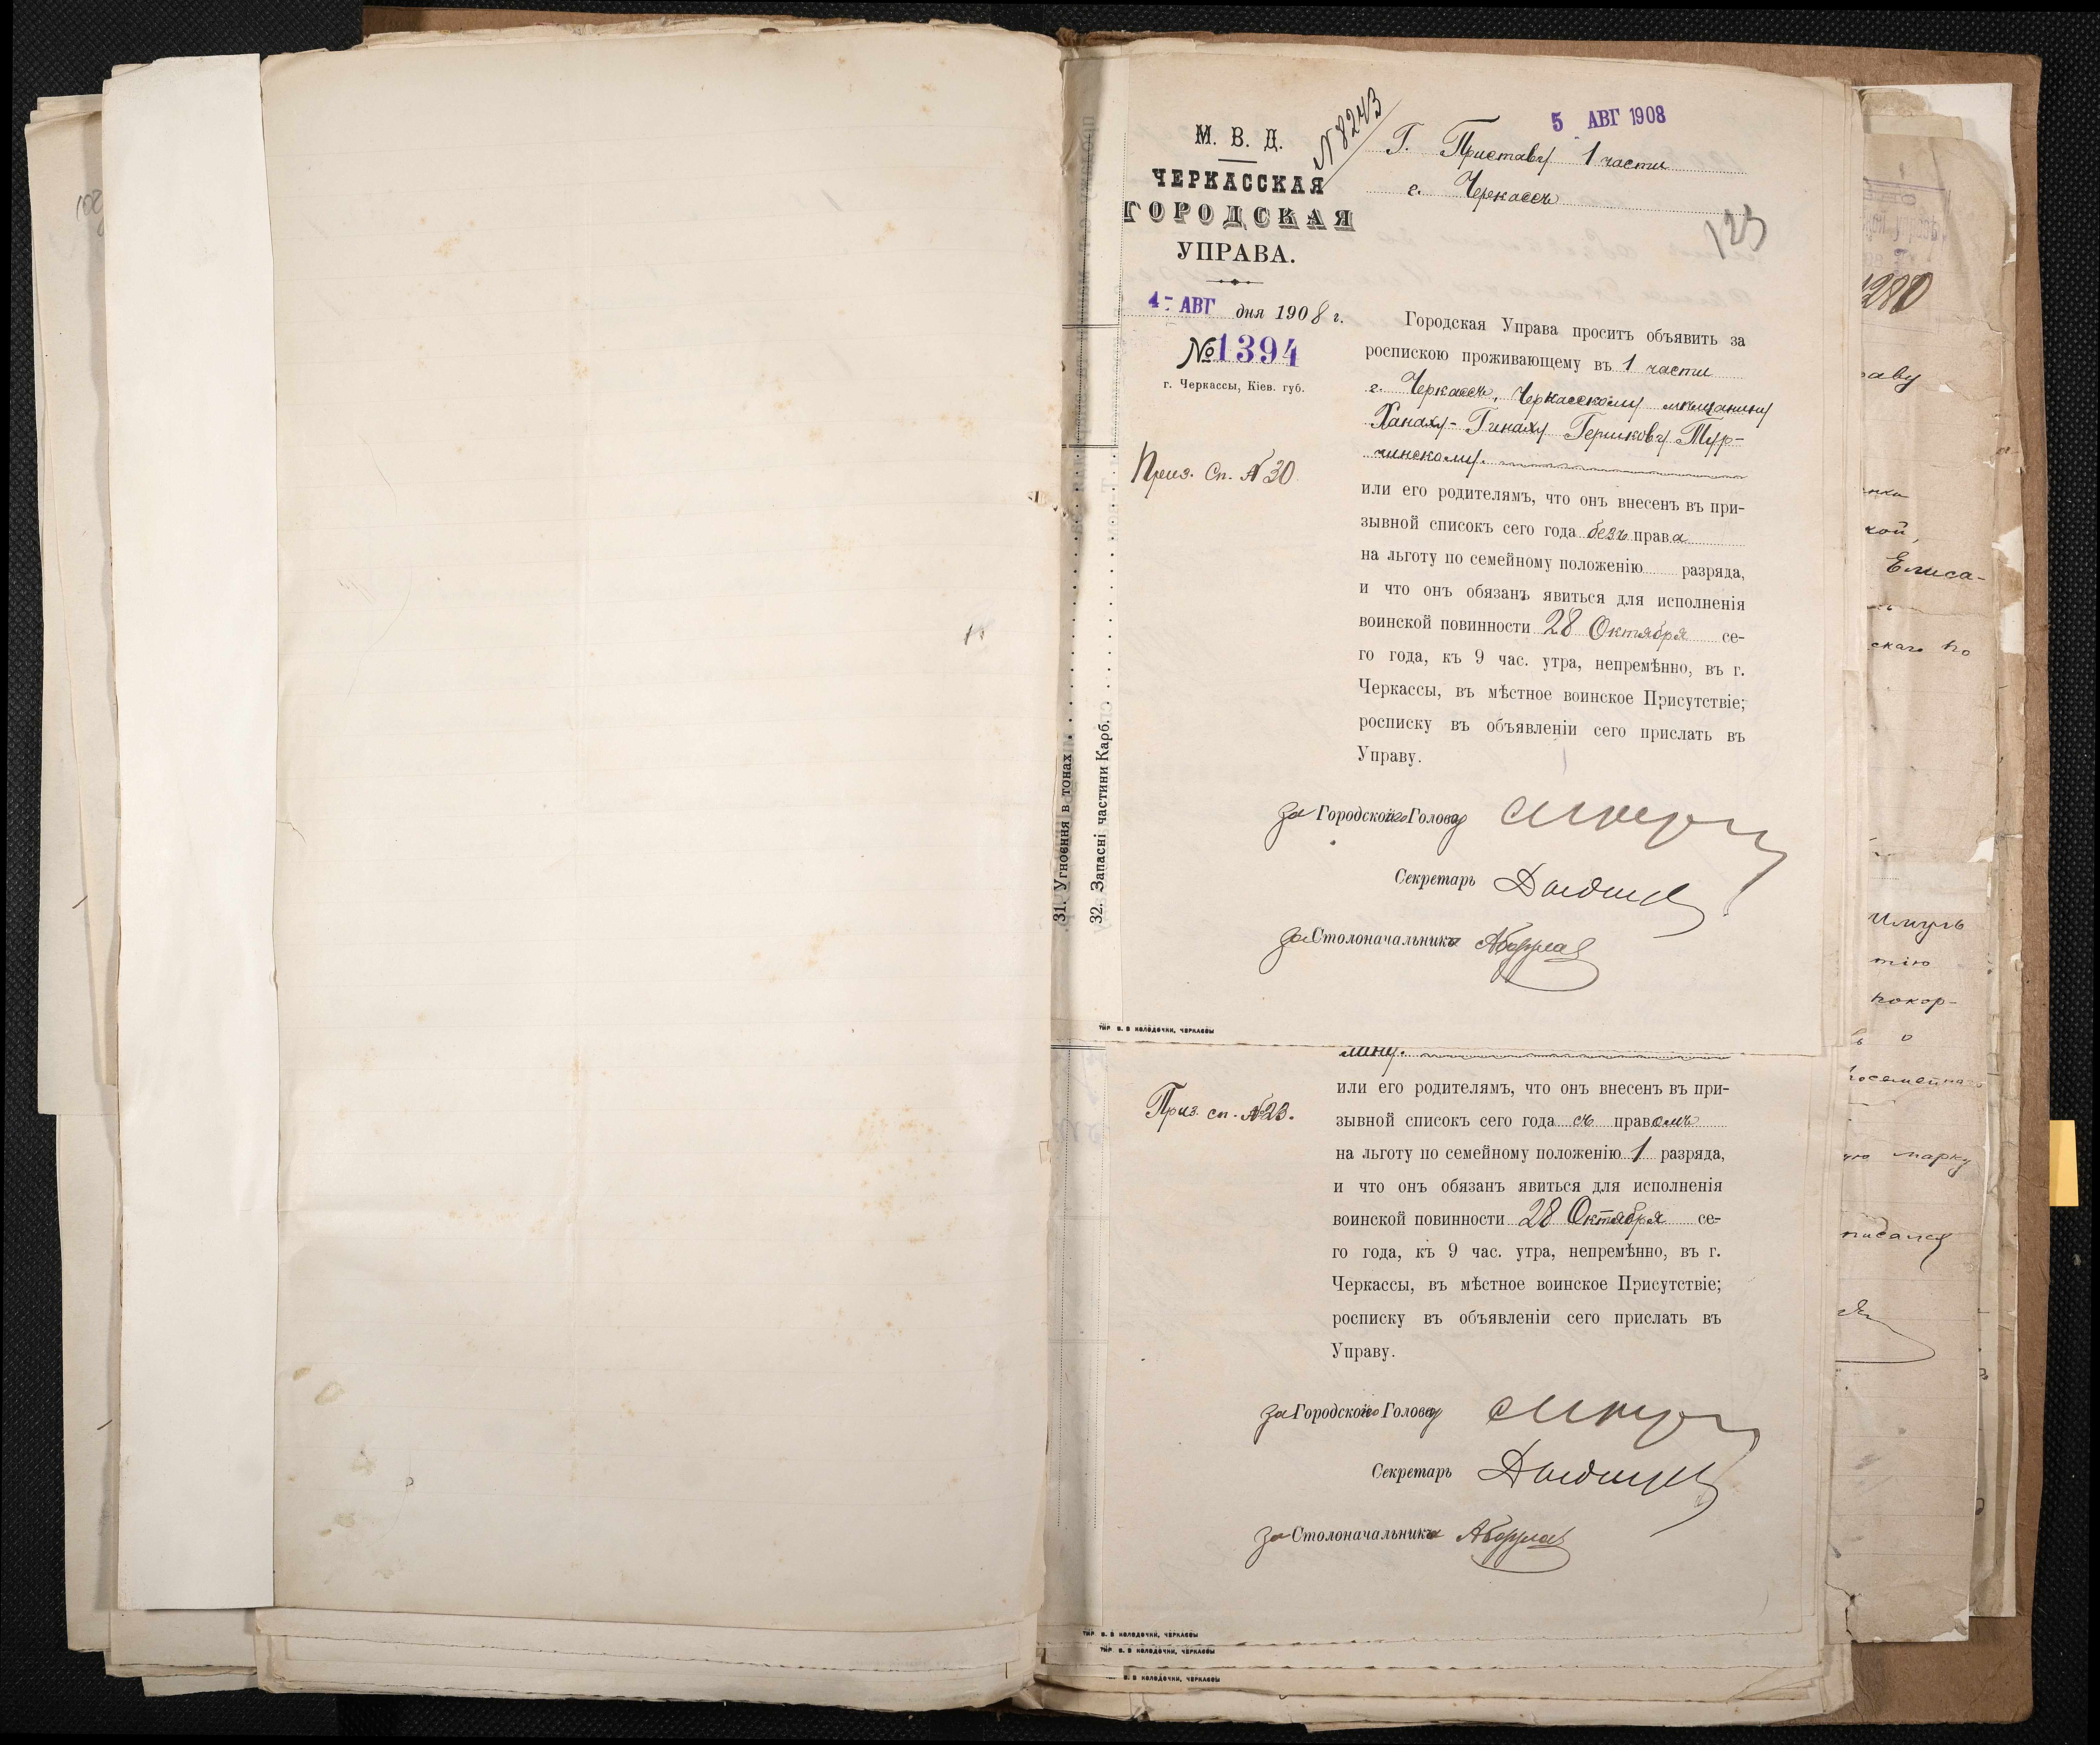 М. В. Д.
ЧЕРКАССКАЯ
ГОРОДСКАЯ
УПРАВА.
4- АВГ дня 1908 г.
№ 1394
г. Черкассы, Кіев. губ.
Приз. Сп. № 30
N 8243
5 АВГ 1908
Г. Приставу 1 части
г. Черкассъ
123
Городская Управа проситъ объявить за
роспискою проживающему въ 1 части
г. Черкассъ, Черкасскому мѣщанину
Ханаху-Гинаху Гершкову Тур-
чинскому.
или его родителямъ, что онъ внесенъ въ при-
зывной списокъ сего года безъ права
на льготу по семейному положенію разряда,
и что онъ обязанъ явиться для исполненія
воинской повинности 28 Октября се-
го года, къ 9 час. утра, непремѣнно, въ г.
Черкассы, въ мѣстное воинское Присутствіе;
росписку въ объявленіи сего прислать въ
Управу.
За Городского Голову
Секретарь
За Столоначальника
ТИП. В. В КОЛОДОЧКИ, ЧЕРКАССЫ
31. Угноєння в тонах
32. Запасні частини Карб.
Приз. сп. № 23.
или его родителямъ, что онъ внесенъ въ при-
зывной списокъ сего года съ правомъ
на льготу по семейному положенію 1 разряда,
и что онъ обязанъ явиться для исполненія
воинской повинности 28 Октября се-
го года, къ 9 час. утра, непремѣнно, въ г.
Черкассы, въ мѣстное воинское Присутствіе;
росписку въ объявленіи сего прислать въ
Управу.
За Городского Голову
Секретарь
За Столоначальника
ТИП. В. В КОЛОДОЧКИ, ЧЕРКАССЫ
ТИП. В. В КОЛОДОЧКИ, ЧЕРКАССЫ
В. В КОЛОДОЧКИ, ЧЕРКАССЫ
Елиса-
скаго по
тію
покор-
о
марку